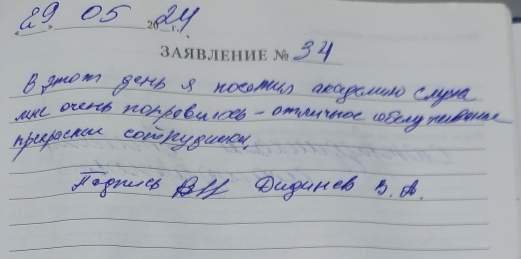 29 05 2024 г.
ЗАЯВЛЕНИЕ № 34
В этот день я посетил академию слуха
мне очень понравилось - отличное обслуживание
прекрасные сотрудники
Подпись Дидинев В. А.